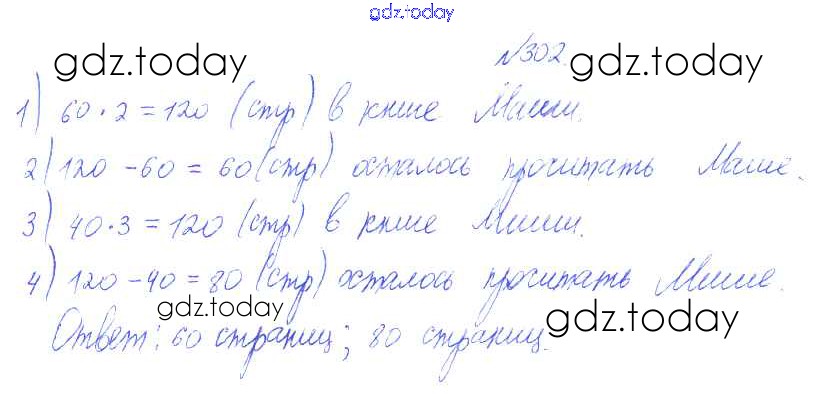 gdz.today
№302.
gdz.today gdz.today
1) 60·2=120 (стр) в книге Маши.
2) 120-60=60(стр) осталось прочитать Маше.
3) 40·3=120 (стр) в книге Миши.
4) 120-40=80 (стр) осталось прочитать Мише.
gdz.today gdz.today
Ответ: 60 страниц; 80 страниц.